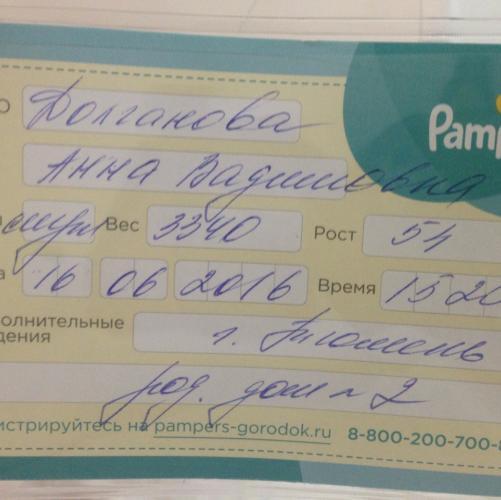 Pamp
Долганова
Анна Вадимовна
Вес 3340 Рост 54
16 06 2016 Время 15 20
олнительные
дения г. Тюмень
род. дом № 2
истрируйтесь на pampers-gorodok.ru 8-800-200-700-8